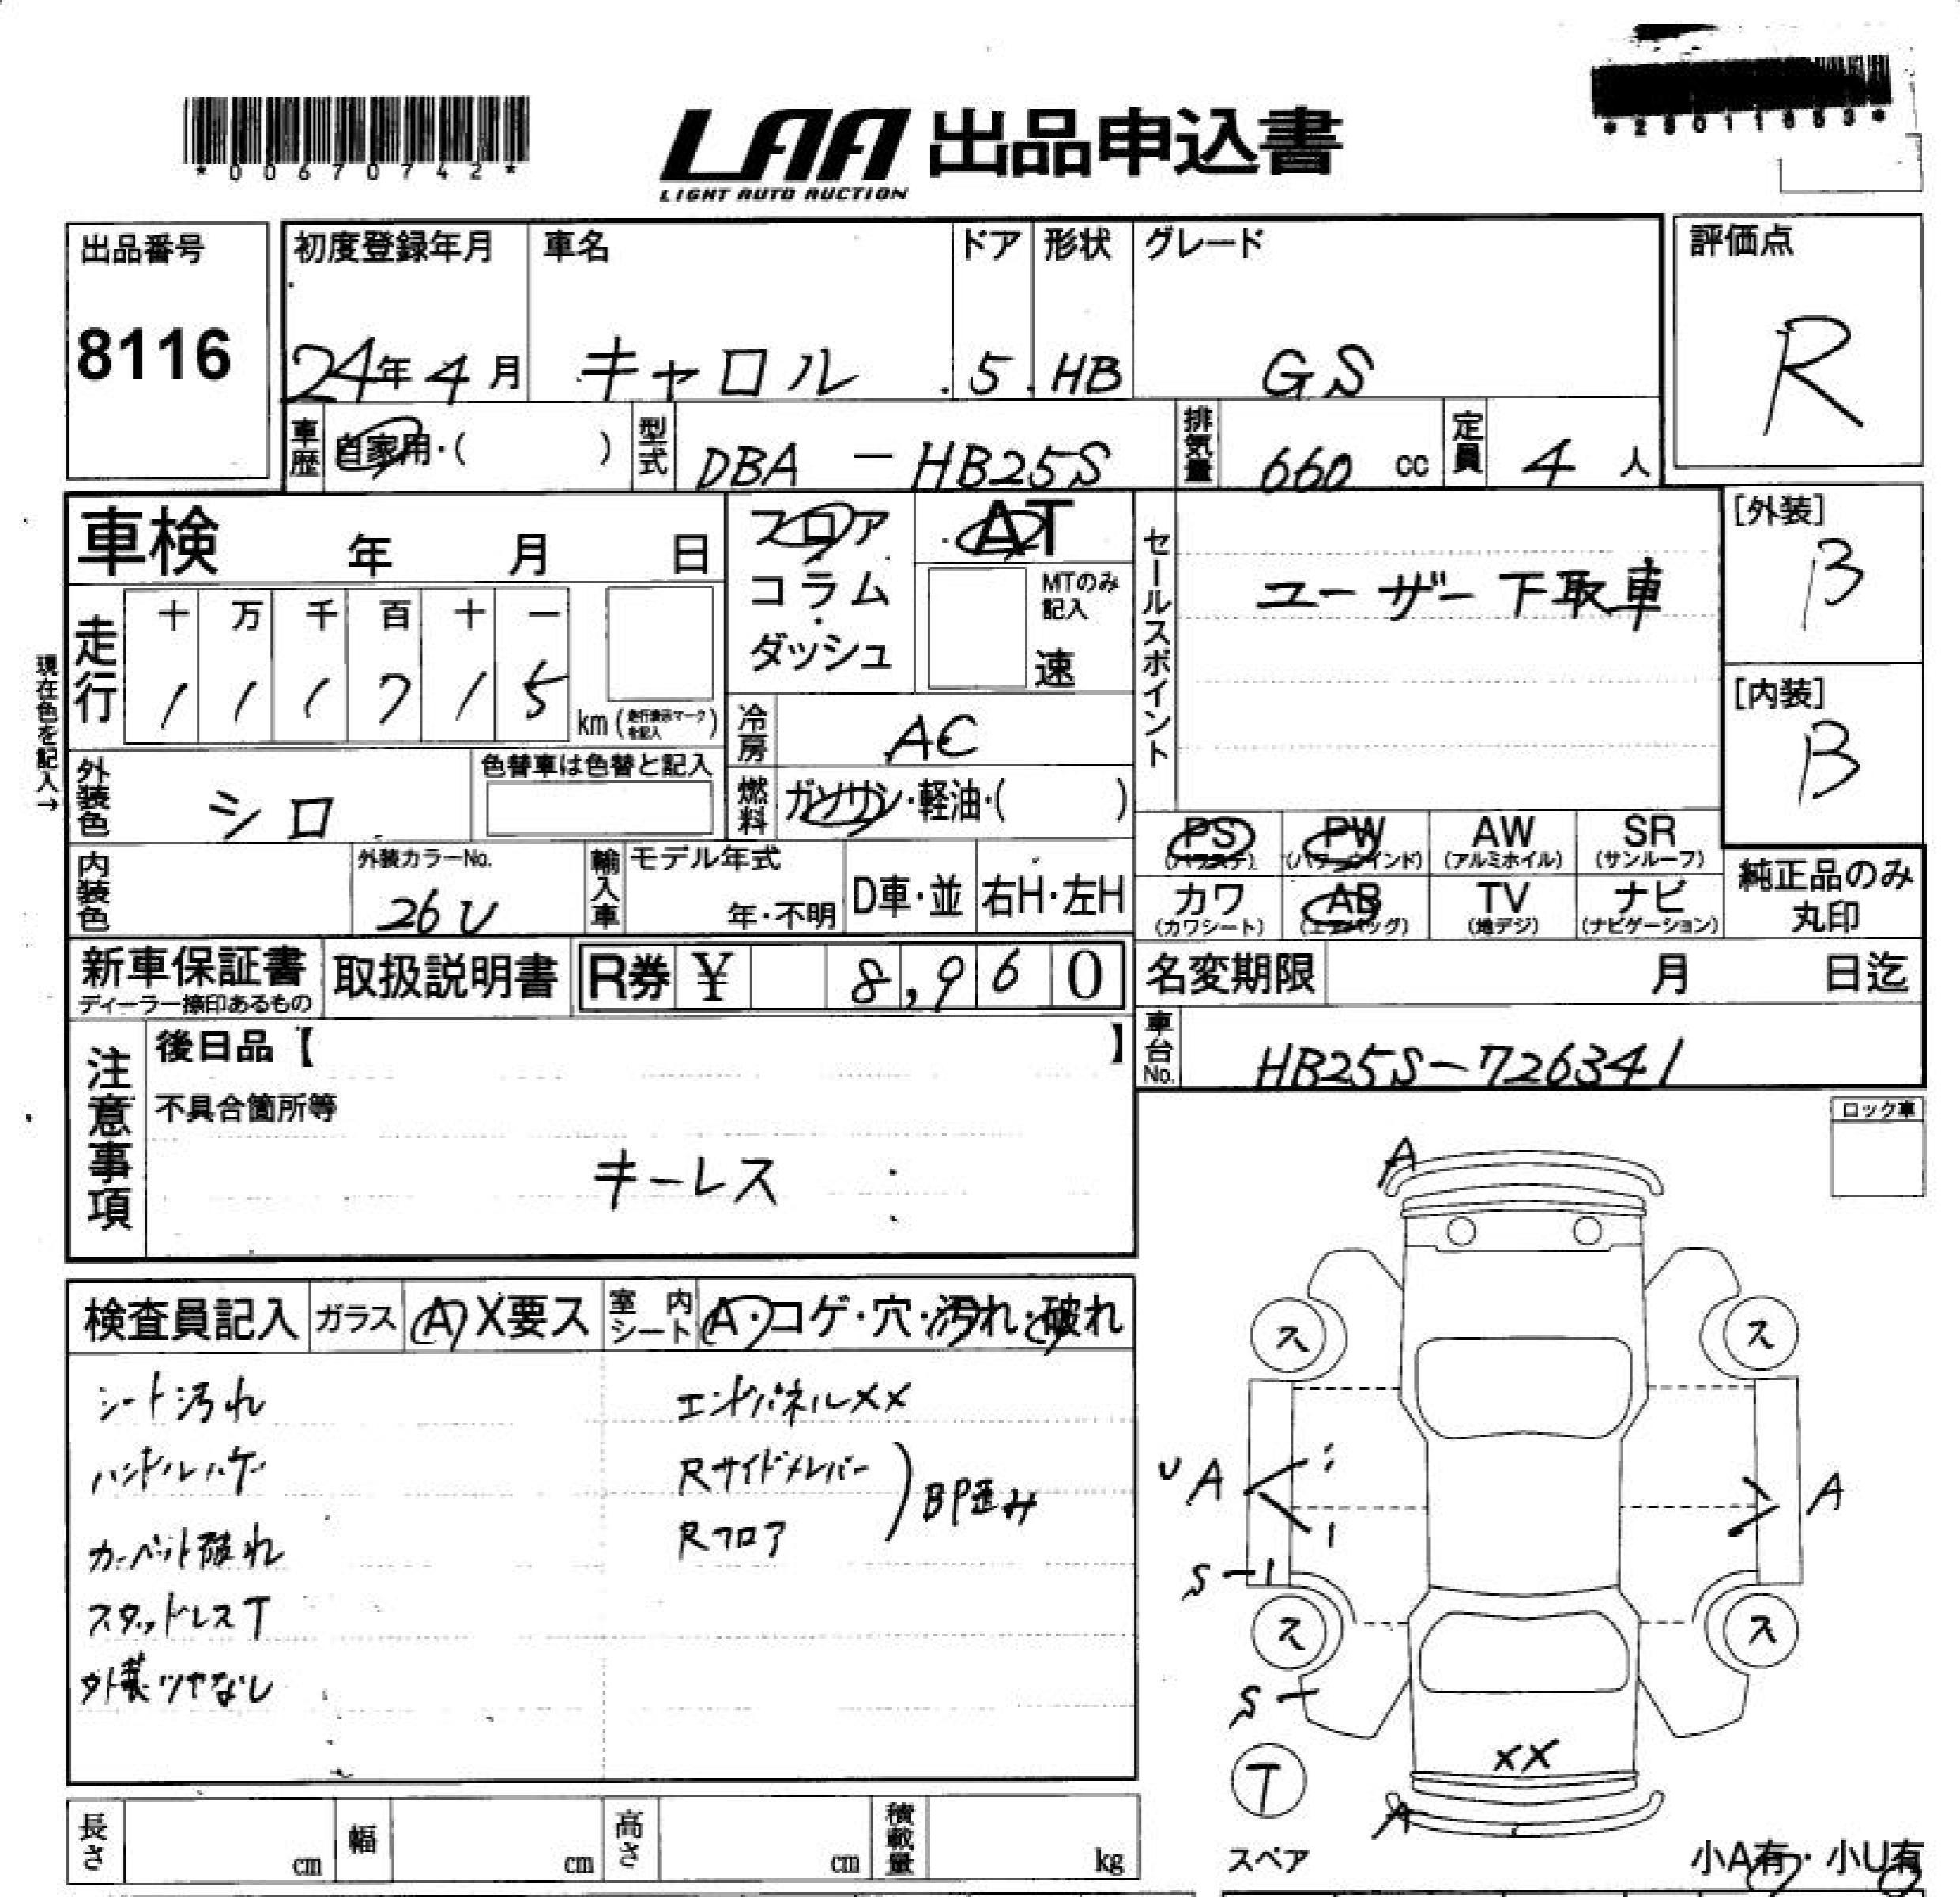 *00670742*
LAA 出品申込書
LIGHT AUTO AUCTION
出品番号
8116
初度登録年月 車名 ドア 形状 グレード
24年4月 キャロル 5 HB GS
評価点
R
車歴 自家用・( ) 型式 DBA-HB25S 排気量 660 cc 定員 4 人
車検 年 月 日
フロア
コラム
ダッシュ
AT
MTのみ記入
速
セールスポイント
ユーザー下取車
[外装]
B
[内装]
B
現在色を記入→
走行 十 万 千 百 十 一
1 1 1 7 1 5
km (走行表示マークを記入)
冷房 AC
燃料 ガソリン・軽油・( )
外装色 シロ
色替車は色替と記入
PS (パワステ) PW (パワーウインド) AW (アルミホイル) SR (サンルーフ)
カワ (カワシート) AB (エアバッグ) TV (地デジ) ナビ (ナビゲーション)
純正品のみ丸印
内装色
外装カラーNo.
26U
輸入車 モデル年式 年・不明 D車・並 右H・左H
新車保証書
ディーラー捺印あるもの
取扱説明書 R券 ¥ 8,960
名変期限 月 日迄
車台No. HB25S-726341
注意事項
後日品【 】
不具合箇所等
キーレス
ロック車
検査員記入 ガラス A X要ス 室内シート A・コゲ・穴・汚れ・破れ
シート汚れ エンドパネルXX
ハンドルハゲ Rサイドメンバー
カーペット破れ Rフロア
BP歪み
スタッドレスT
外装ツヤなし
A
ス ス
U A A
S-1
ス ス
S
XX
T
A
スペア
小A有・小U有
長さ cm 幅 cm 高さ cm 積載量 kg